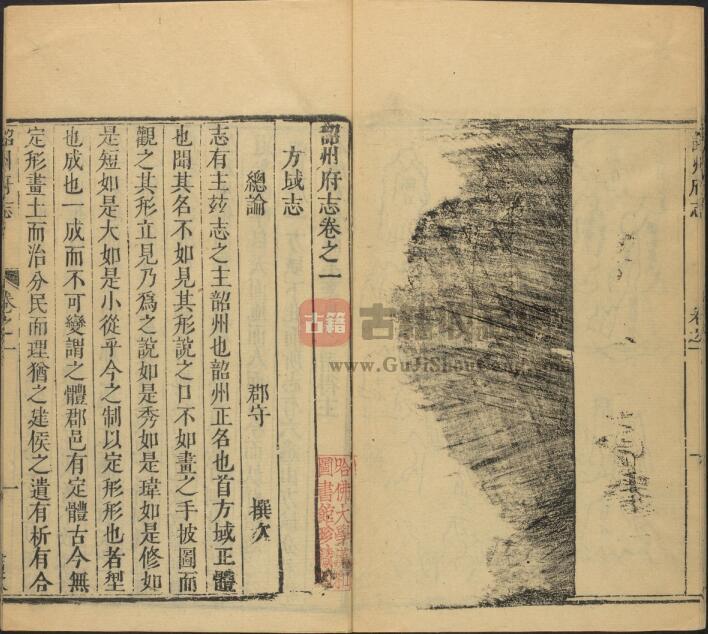 韶州府志卷之一
方域志
總論
郡守
撰文
志有主玆志之主韶州也韶州正名也首方域正體
也聞其名不如見其形說之口不如畫之手披圖而
觀之其形立見乃爲之說如是秀如是瑋如是修如
是短如是大如是小從乎今之制以定形形也者型
也成也一成而不可變謂之體郡邑有定體古今無
定形畫土而治分民而理猶之建侯之遺有析有合
韶州府志
卷之一
一
古籍
www.GuJiShou
哈佛大學漢和
圖書館珍藏